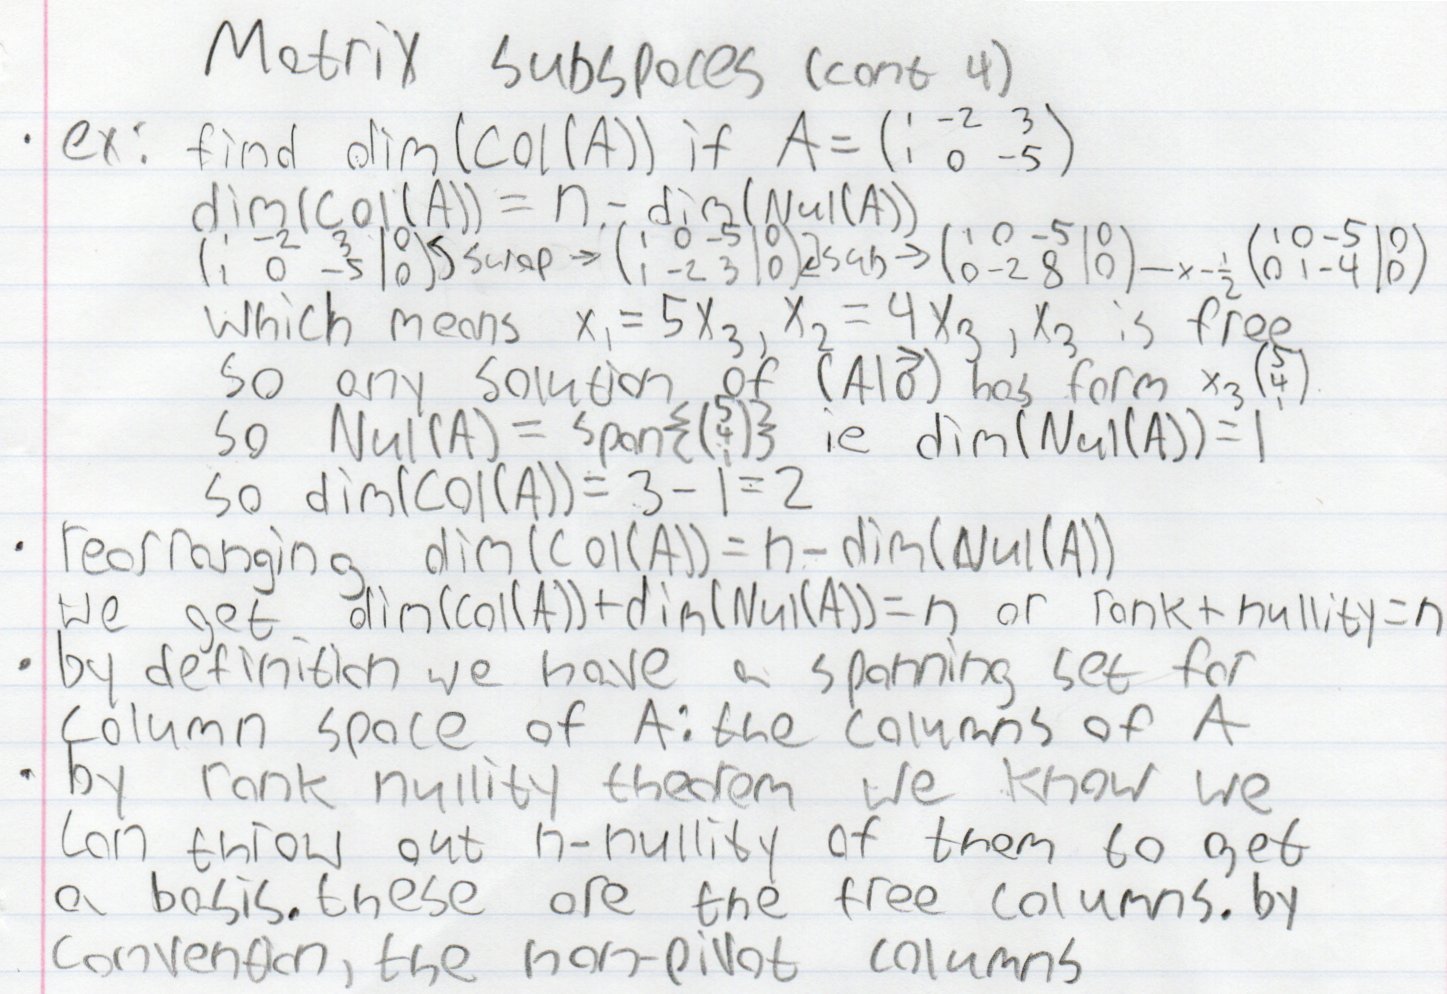 Matrix subspaces (cont 4)
• ex: find dim(Col(A)) if A = (1 -2 3 / 1 0 -5)
dim(Col(A)) = n - dim(Nul(A))
(1 -2 3 | 0 / 1 0 -5 | 0) swap → (1 0 -5 | 0 / 1 -2 3 | 0) sub → (1 0 -5 | 0 / 0 -2 8 | 0) — x -1/2 (1 0 -5 | 0 / 0 1 -4 | 0)
which means x₁ = 5x₃, x₂ = 4x₃, x₃ is free
so any solution of (A|0⃗) has form x₃(5 / 4 / 1).
so Nul(A) = span{(5 / 4 / 1)} ie dim(Nul(A)) = 1
so dim(Col(A)) = 3 - 1 = 2
• rearranging dim(Col(A)) = n - dim(Nul(A))
we get dim(Col(A)) + dim(Nul(A)) = n or rank + nullity = n
• by definition we have a spanning set for
column space of A: the columns of A
• by rank nullity theorem we know we
can throw out n-nullity of them to get
a basis. these are the free columns. by
convention, the non-pivot columns